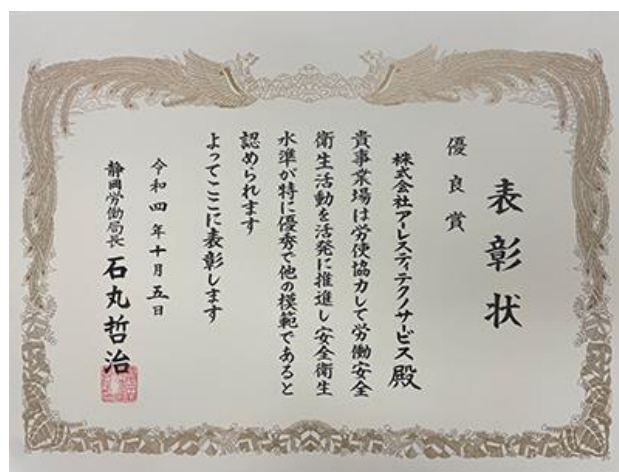 表彰状
優良賞
株式会社アーレスティテクノサービス殿
貴事業場は労使協力して労働安全
衛生活動を活発に推進し安全衛生
水準が特に優秀で他の模範であると
認められます
よってここに表彰します
令和四年十月五日
静岡労働局長 石丸哲治